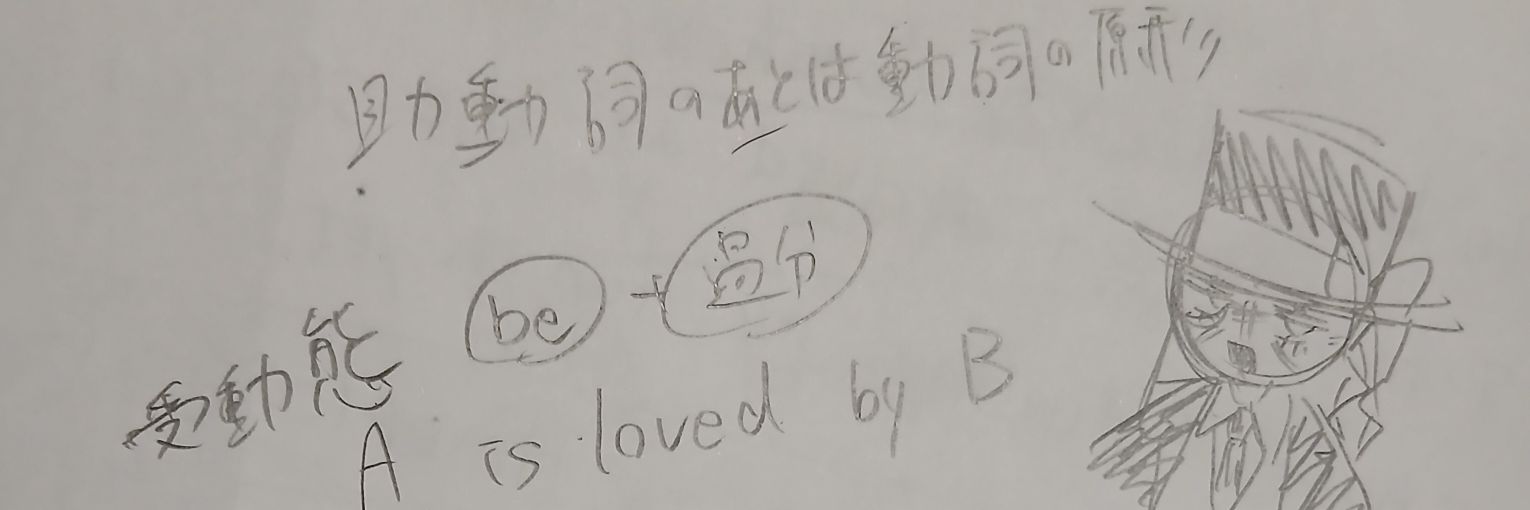 助動詞のあとは動詞の原形
受動態 be + 過分
A is loved by B